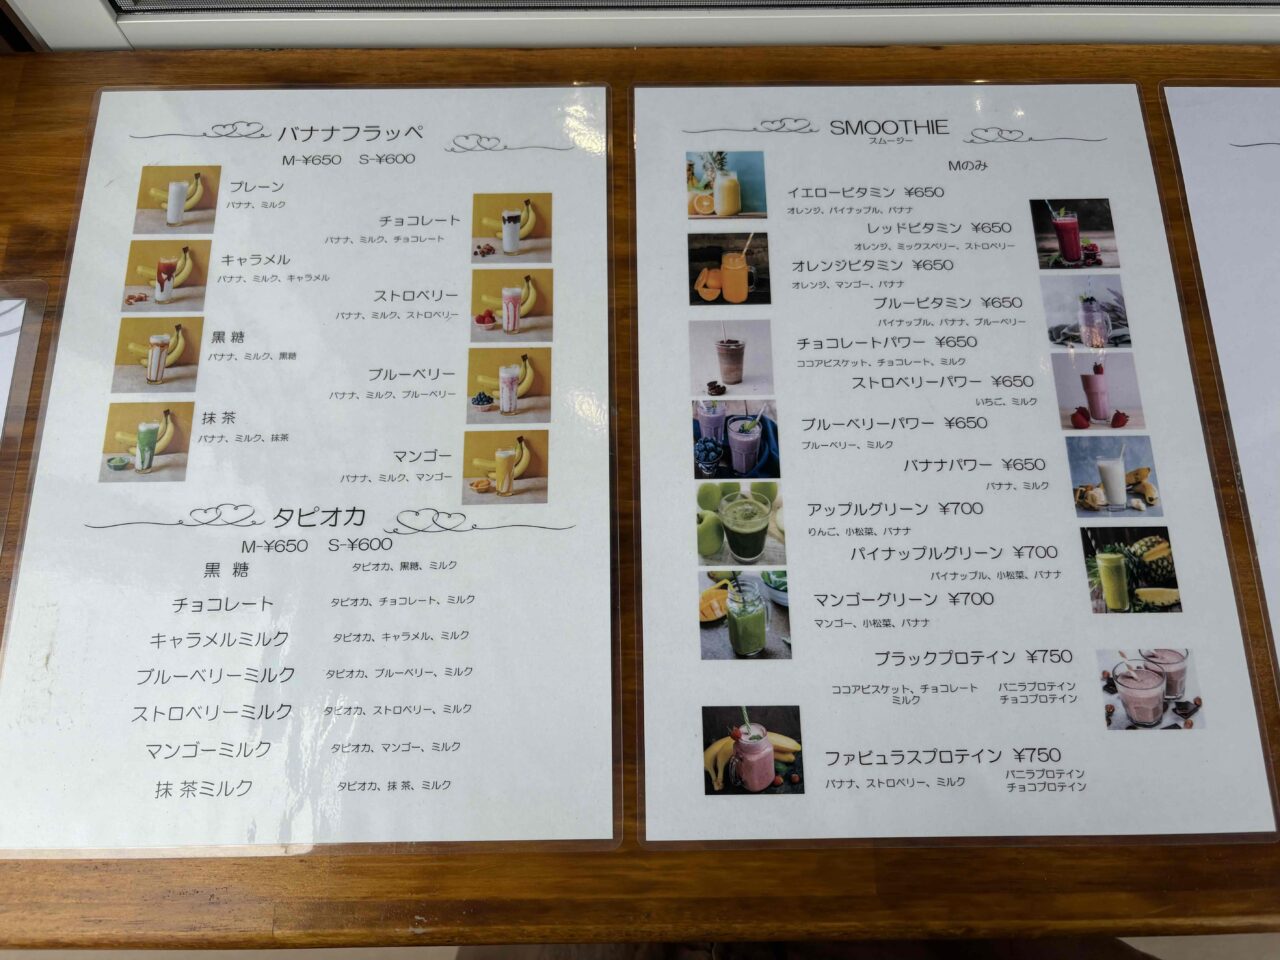 バナナフラッペ
M-¥650 S-¥600
プレーン
バナナ、ミルク
チョコレート
バナナ、ミルク、チョコレート
キャラメル
バナナ、ミルク、キャラメル
ストロベリー
バナナ、ミルク、ストロベリー
黒糖
バナナ、ミルク、黒糖
ブルーベリー
バナナ、ミルク、ブルーベリー
抹茶
バナナ、ミルク、抹茶
マンゴー
バナナ、ミルク、マンゴー
タピオカ
M-¥650 S-¥600
黒糖 タピオカ、黒糖、ミルク
チョコレート タピオカ、チョコレート、ミルク
キャラメルミルク タピオカ、キャラメル、ミルク
ブルーベリーミルク タピオカ、ブルーベリー、ミルク
ストロベリーミルク タピオカ、ストロベリー、ミルク
マンゴーミルク タピオカ、マンゴー、ミルク
抹茶ミルク タピオカ、抹茶、ミルク
SMOOTHIE
スムージー
Mのみ
イエロービタミン ¥650
オレンジ、パイナップル、バナナ
レッドビタミン ¥650
オレンジ、ミックスベリー、ストロベリー
オレンジビタミン ¥650
オレンジ、マンゴー、バナナ
ブルービタミン ¥650
パイナップル、バナナ、ブルーベリー
チョコレートパワー ¥650
ココアビスケット、チョコレート、ミルク
ストロベリーパワー ¥650
いちご、ミルク
ブルーベリーパワー ¥650
ブルーベリー、ミルク
バナナパワー ¥650
バナナ、ミルク
アップルグリーン ¥700
りんご、小松菜、バナナ
パイナップルグリーン ¥700
パイナップル、小松菜、バナナ
マンゴーグリーン ¥700
マンゴー、小松菜、バナナ
ブラックプロテイン ¥750
ココアビスケット、チョコレート バニラプロテイン
ミルク チョコプロテイン
ファビュラスプロテイン ¥750
バナナ、ストロベリー、ミルク バニラプロテイン
チョコプロテイン